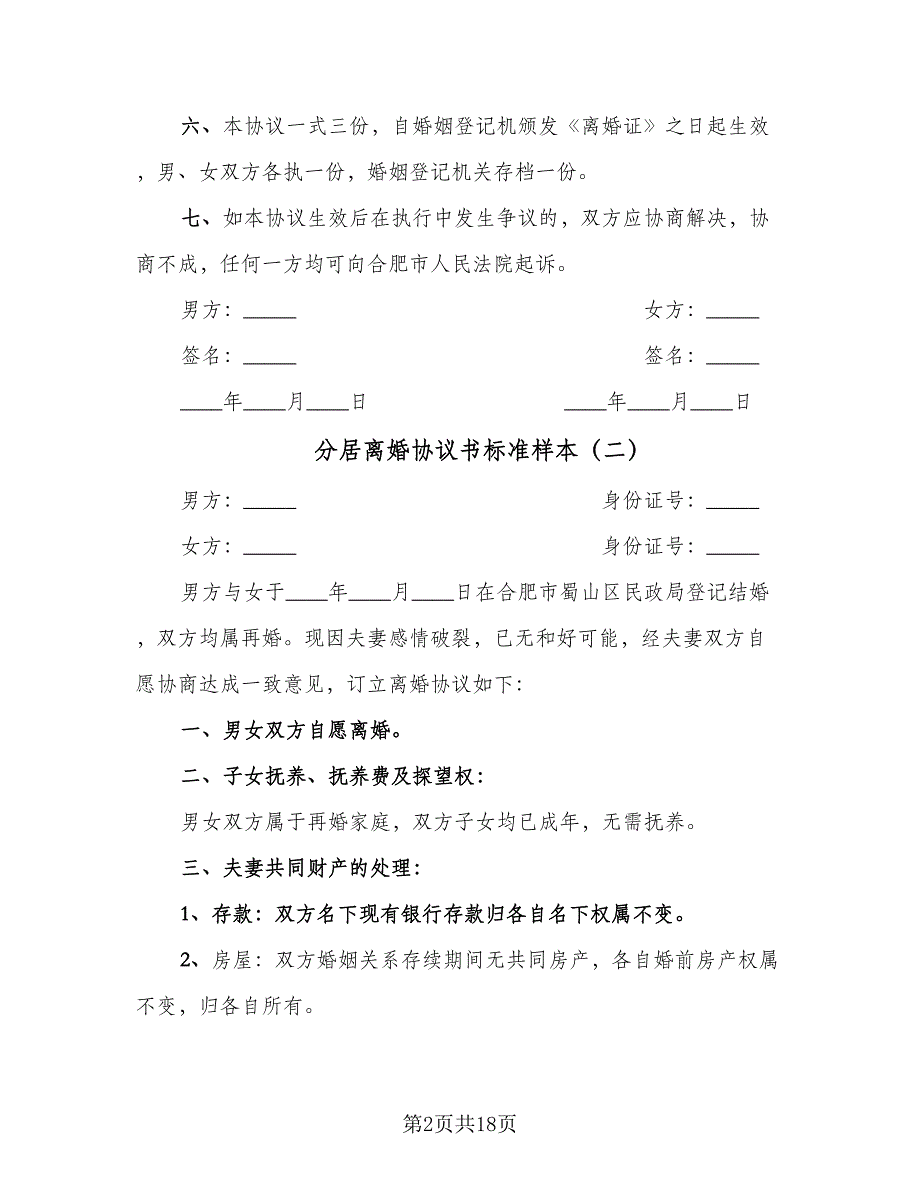 六、本协议一式三份，自婚姻登记机颁发《离婚证》之日起生效
，男、女双方各执一份，婚姻登记机关存档一份。
七、如本协议生效后在执行中发生争议的，双方应协商解决，协
商不成，任何一方均可向合肥市人民法院起诉。
男方：_____ 女方：_____
签名：_____ 签名：_____
____年____月____日 ____年____月____日
分居离婚协议书标准样本（二）
男方：_____ 身份证号：_____
女方：_____ 身份证号：_____
男方与女于____年____月____日在合肥市蜀山区民政局登记结婚
，双方均属再婚。现因夫妻感情破裂，已无和好可能，经夫妻双方自
愿协商达成一致意见，订立离婚协议如下：
一、男女双方自愿离婚。
二、子女抚养、抚养费及探望权：
男女双方属于再婚家庭，双方子女均已成年，无需抚养。
三、夫妻共同财产的处理：
1、存款：双方名下现有银行存款归各自名下权属不变。
2、房屋：双方婚姻关系存续期间无共同房产，各自婚前房产权属
不变，归各自所有。
第2页共18页